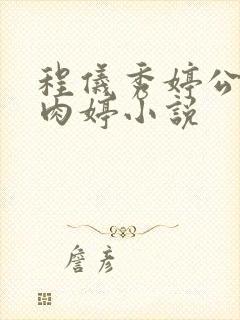 程儀秀婷公
肉婷小説
詹彦